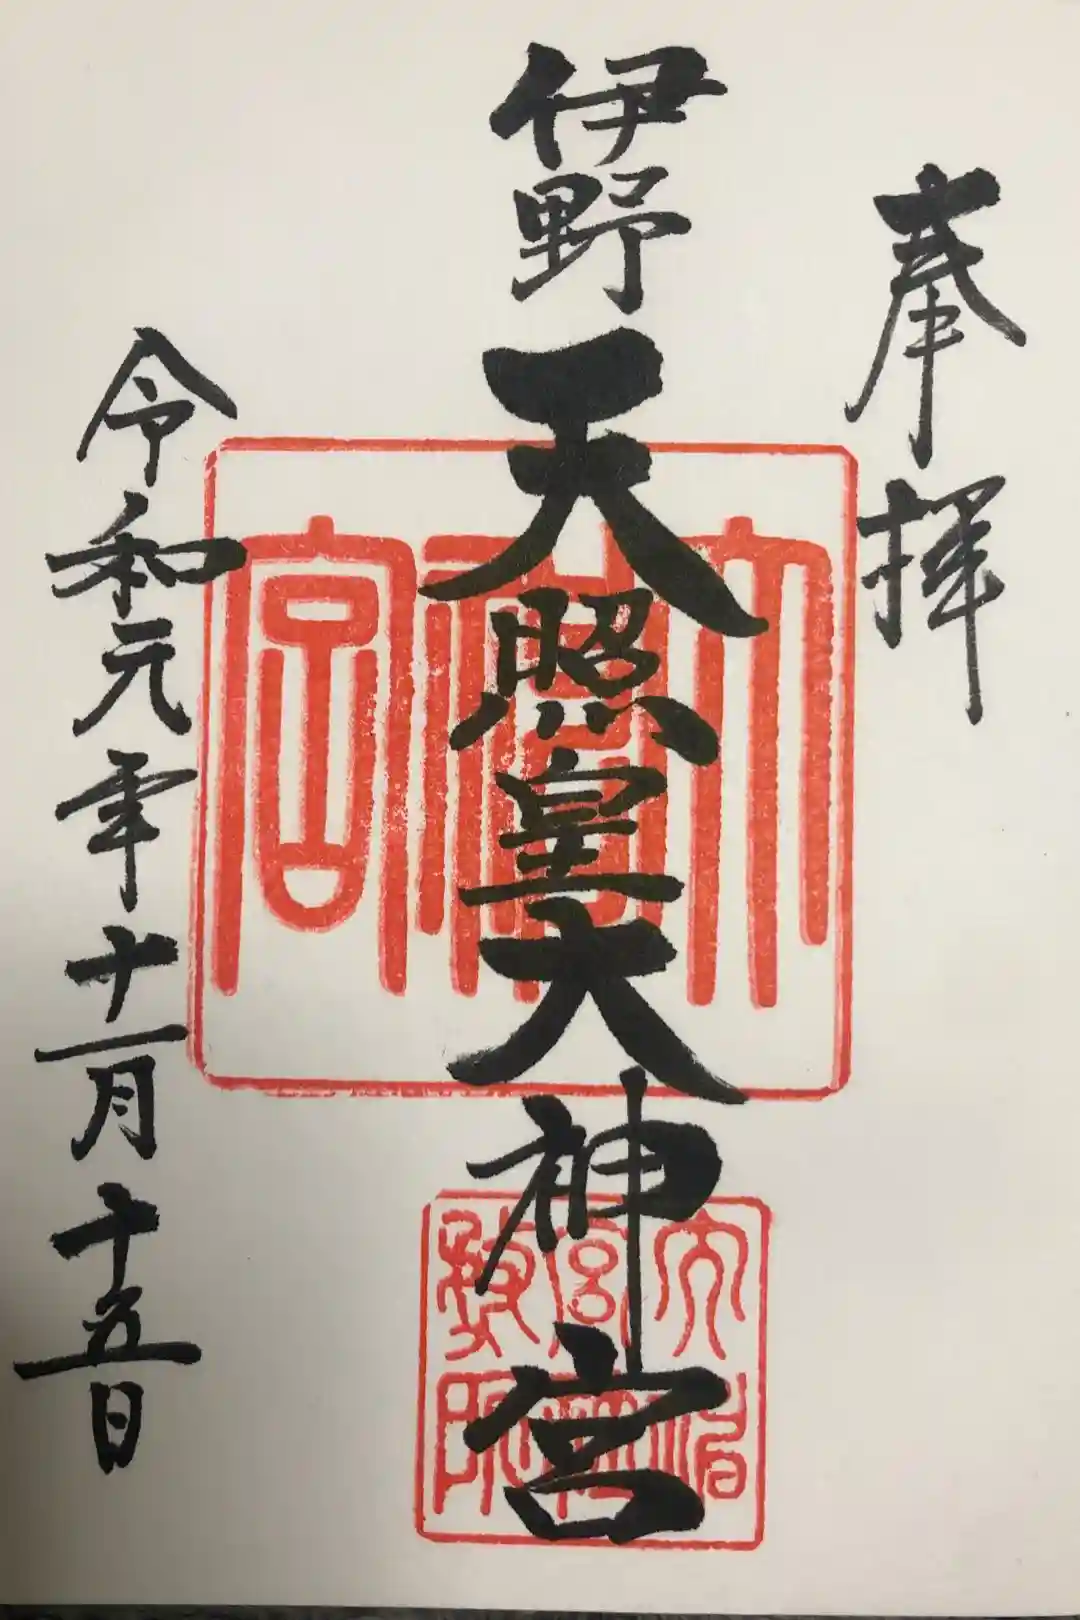 奉拝
伊野天照皇大神宮
令和元年十一月十五日
大神宮